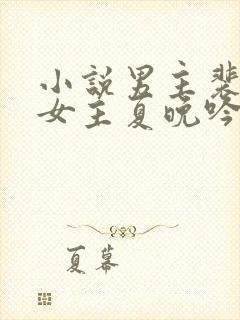 小说男主裴
女主夏晚吟
夏幕